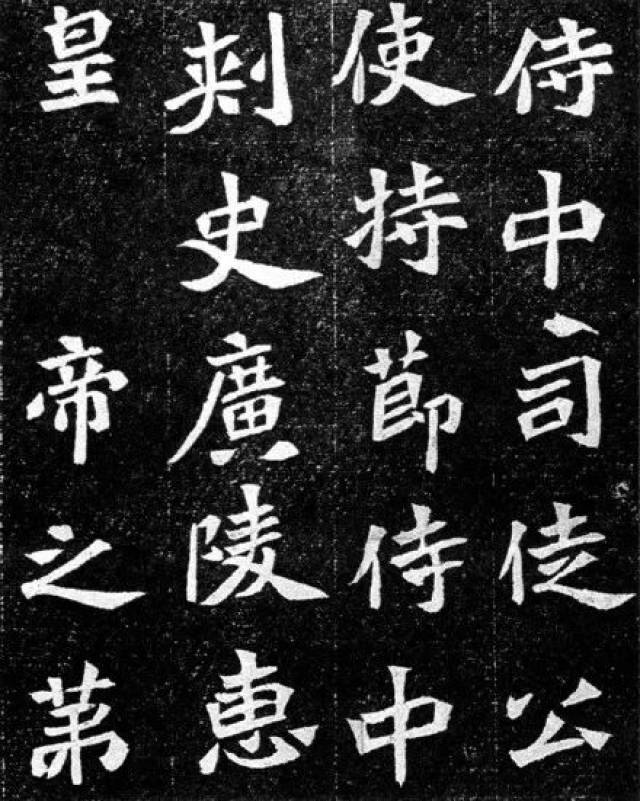 侍中司徒公
使持節侍中
刺史廣陵惠
皇帝之第